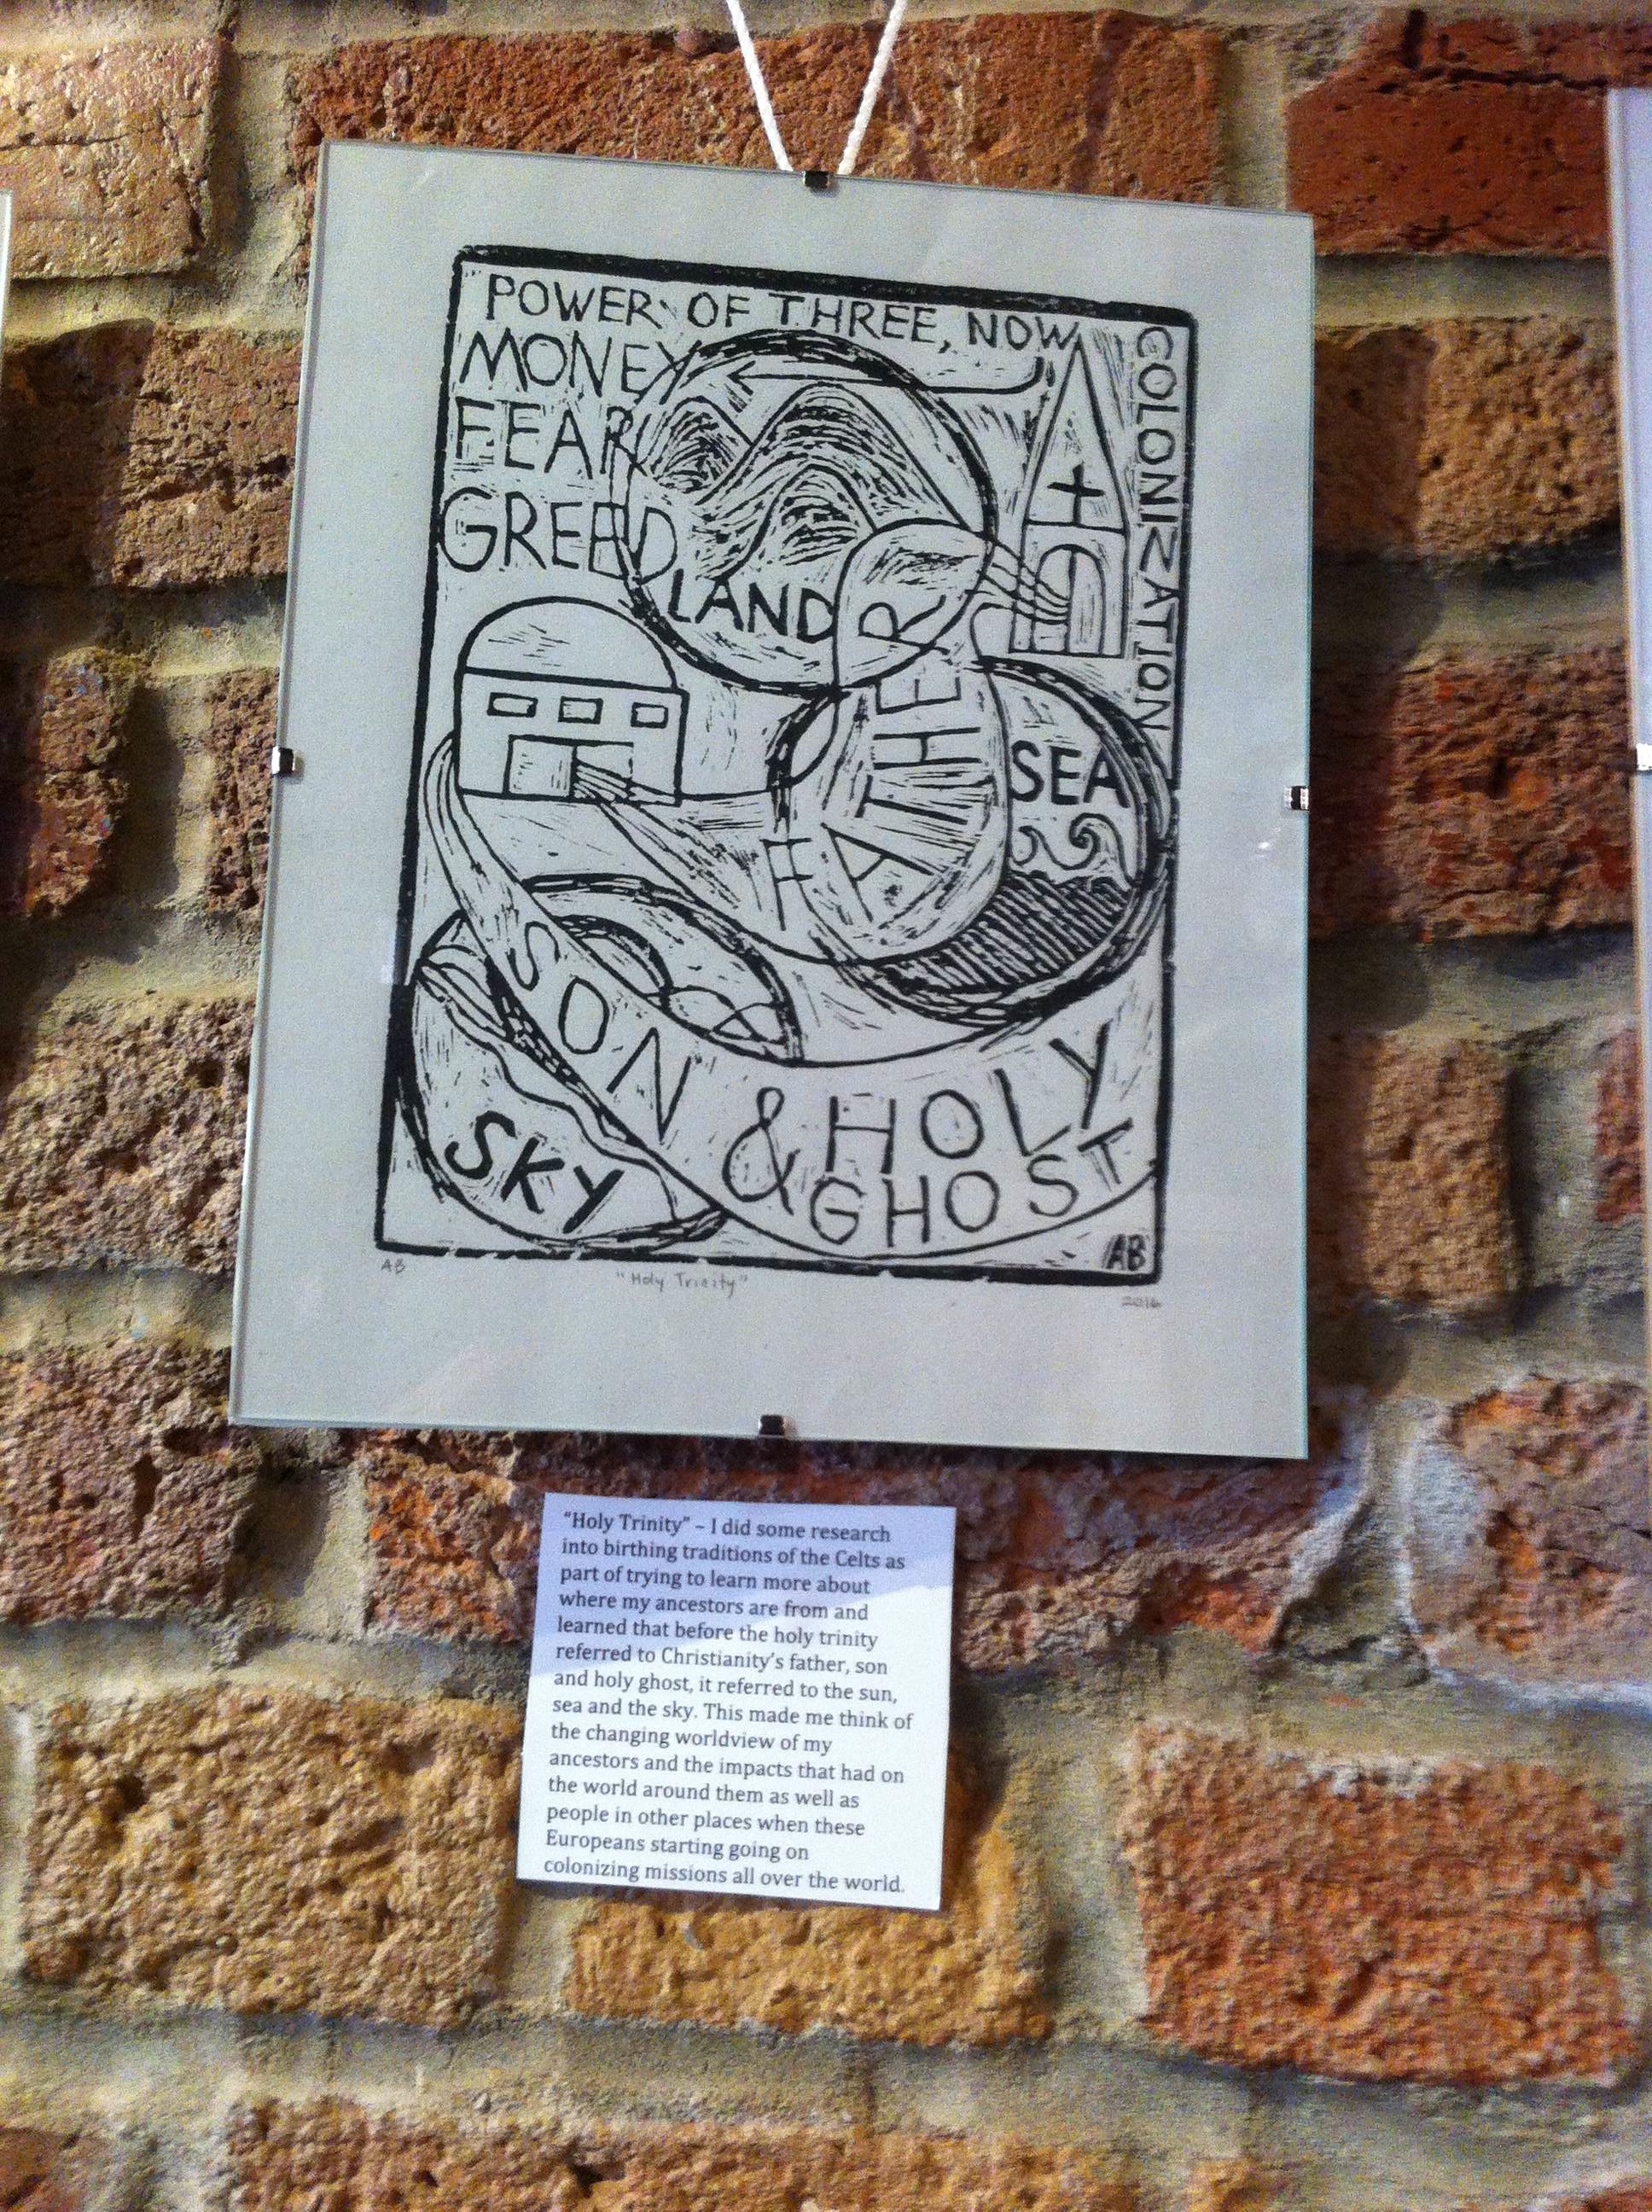 POWER OF THREE, NOW
MONEY
FEAR
GREED
COLONIZATION
LAND
FATHER
SEA
SON & HOLY
GHOST
SKY
AB
AB
"Holy Trinity"
2016
"Holy Trinity" – I did some research
into birthing traditions of the Celts as
part of trying to learn more about
where my ancestors are from and
learned that before the holy trinity
referred to Christianity's father, son
and holy ghost, it referred to the sun,
sea and the sky. This made me think of
the changing worldview of my
ancestors and the impacts that had on
the world around them as well as
people in other places when these
Europeans starting going on
colonizing missions all over the world.